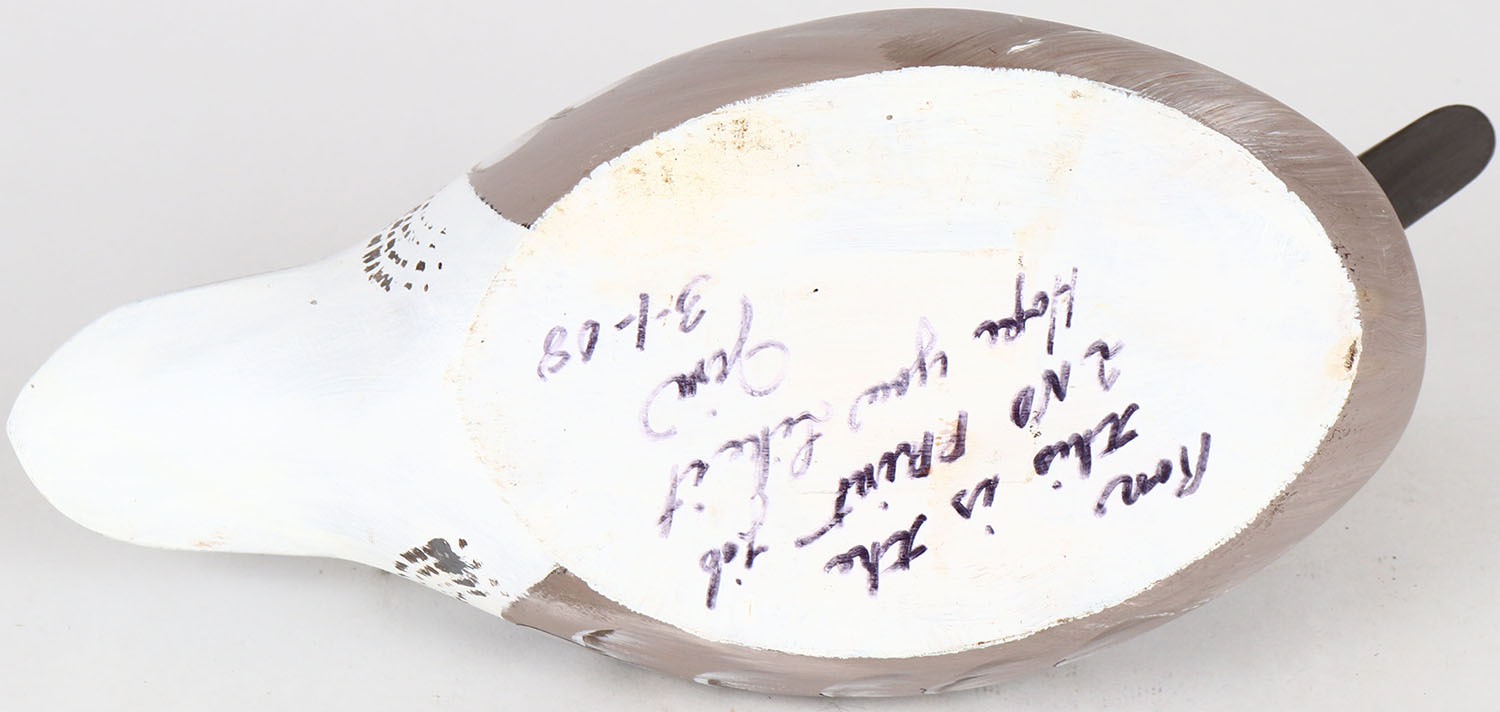 Ron
this is the
2ND PRINT job
Hope you like it
Jim
3-1-08